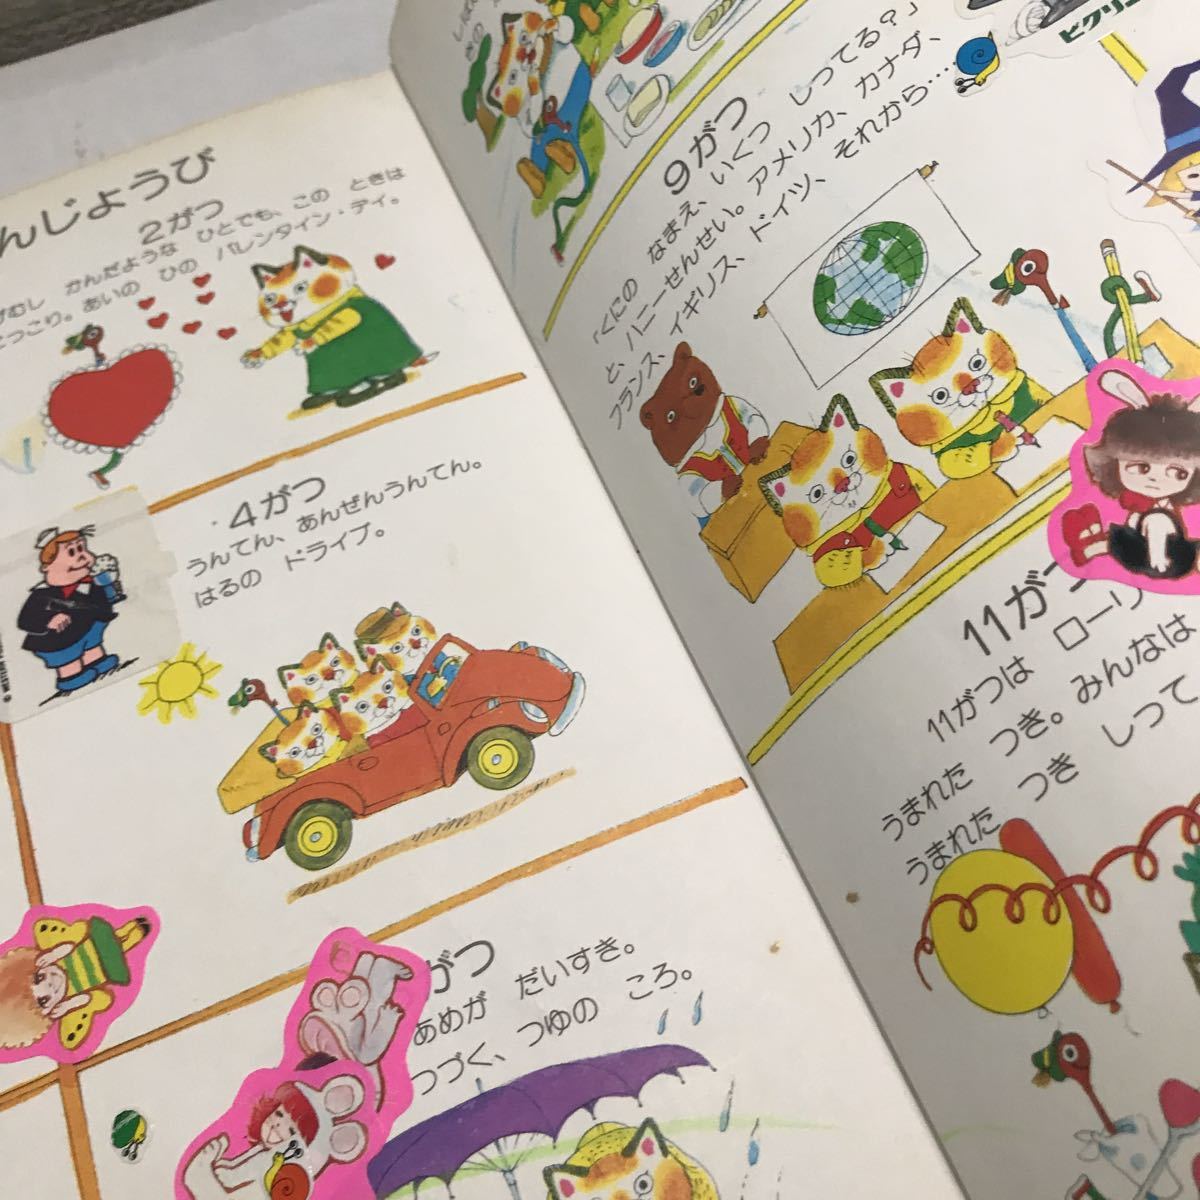 んじょうび
2がつ
けむし かんだような ひとでも、この ときは
にっこり。あいの ひの バレンタイン・デイ。
4がつ
うんてん、あんぜんうんてん。
はるの ドライブ。
がつ
あめが だいすき。
つづく、つゆの ころ。
9がつ
「くにの なまえ、いくつ しってる？」
と、ハニーせんせい。アメリカ、カナダ、
フランス、イギリス、ドイツ、それから……
11がつ
11がつは ローリ
うまれた つき。みんなは
うまれた つき しって
ビクリ